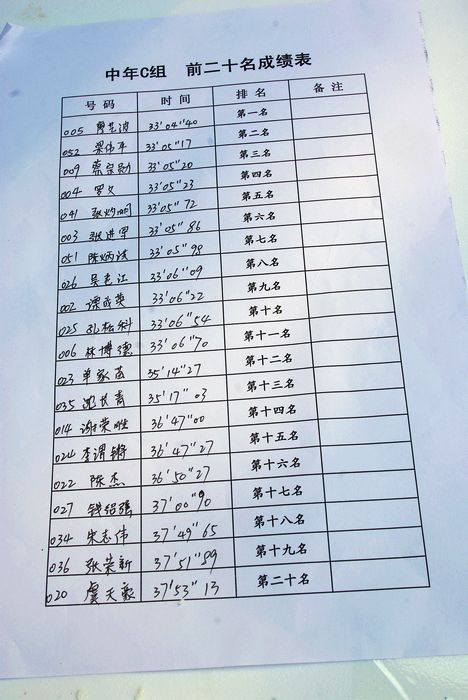 中年C组 前二十名成绩表
号码 时间 排名 备注
005 周艺波 33'04"40 第一名
052 梁伟平 33'05"17 第二名
009 蔡宗勋 33'05"20 第三名
004 罗义 33'05"23 第四名
041 张灼明 33'05"72 第五名
003 张进军 33'05"86 第六名
051 33'05"98 第七名
026 吴志江 33'06"09 第八名
002 谭成荣 33'06"22 第九名
025 孔松科 33'06"54 第十名
006 林博德 33'06"70 第十一名
023 单家商 35'14"27 第十二名
035 35'17"03 第十三名
014 谢荣胜 36'47"00 第十四名
024 李渭锵 36'47"27 第十五名
022 陈杰 36'50"27 第十六名
027 钱绍强 37'00"90 第十七名
034 朱志伟 37'49"65 第十八名
036 张荣新 37'51"99 第十九名
020 虞天豪 37'53"13 第二十名